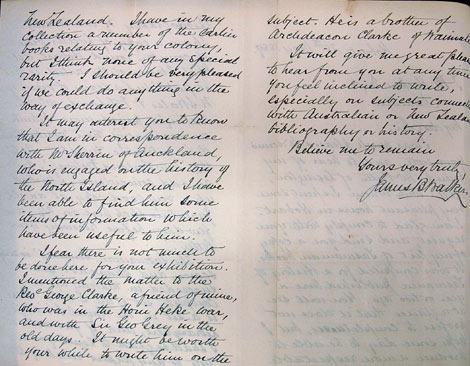 New Zealand. I have in my
collection a number of the earlier
books relating to your colony,
but I think none of any special
rarity. I should be very pleased
if we could do anything in the
way of exchange.
It may interest you to know
that I am in correspondence
with Mr Sherrin of Auckland,
who is engaged on the history of
the North Island, and I have
been able to find him some
items of information which
have been useful to him.
I fear there is not much to
be done here for your exhibition.
I mentioned the matter to the
Revd George Clarke, a friend of mine,
who was in the Honi Heke war,
and with Sir Geo Grey in the
old days. It might be worth
your while to write him on the
subject. He is a brother of
Archdeacon Clarke of Waimate
It will give me great pleas
to hear from you at any time
you feel inclined to write,
especially on subjects connec
with Australian or New Zeala
bibliography or history.
Believe me to remain
Yours very truly
James B Walker